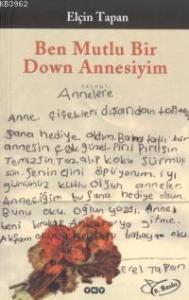 Elçin Tapan
Ben Mutlu Bir
Down Annesiyim
YAŞANTI
Annelere
Anne, çiçekleri dışarıdan
Sana hediye aldım. Bana
annesin çok güzel. Pırıl Pırılsın
Temizsin. Toz alıp koku sürmüş
sun. Senin elini öpüyorum. iyi
gününüz kutlu olsun anneler.
Anneciğim bu sana hediye olsun.
Bunu oku. Oğlun yazdı. Anne
beni bırak Ankara'ya gitme.
Akşam
Erel Tapan
8. Baskı
YKY